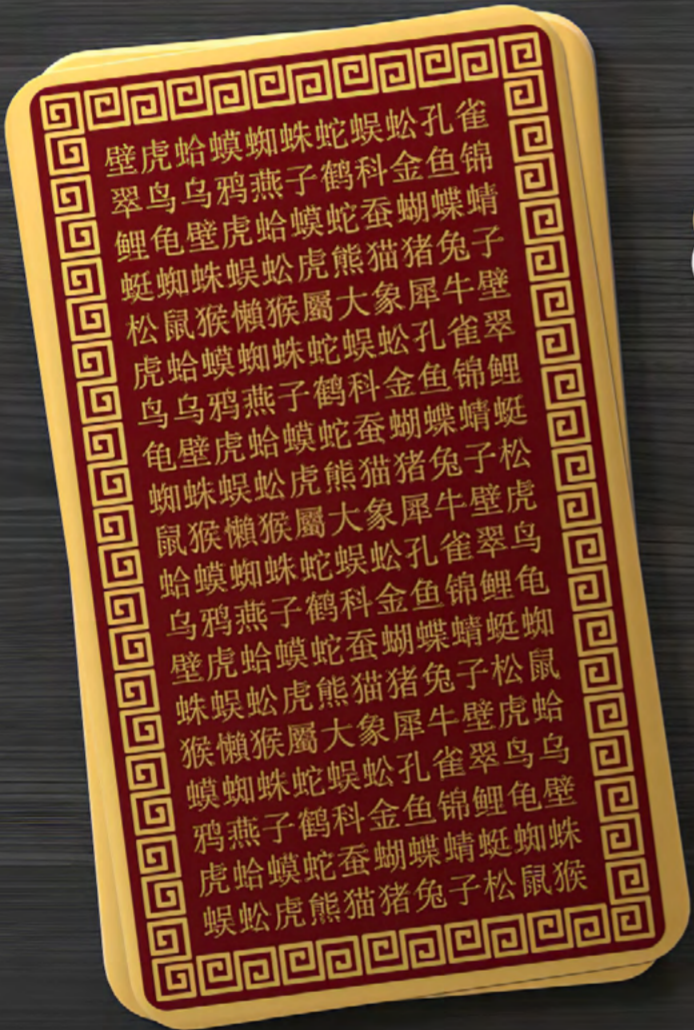 壁虎蛤蟆蜘蛛蛇蜈蚣孔雀
翠鸟乌鸦燕子鹤科金鱼锦
鲤龟壁虎蛤蟆蛇蚕蝴蝶蜻
蜓蜘蛛蜈蚣虎熊猫猪兔子
松鼠猴懒猴屬大象犀牛壁
虎蛤蟆蜘蛛蛇蜈蚣孔雀翠
鸟乌鸦燕子鹤科金鱼锦鲤
龟壁虎蛤蟆蛇蚕蝴蝶蜻蜓
蜘蛛蜈蚣虎熊猫猪兔子松
鼠猴懒猴屬大象犀牛壁虎
蛤蟆蜘蛛蛇蜈蚣孔雀翠鸟
乌鸦燕子鹤科金鱼锦鲤龟
壁虎蛤蟆蛇蚕蝴蝶蜻蜓蜘
蛛蜈蚣虎熊猫猪兔子松鼠
猴懒猴屬大象犀牛壁虎蛤
蟆蜘蛛蛇蜈蚣孔雀翠鸟乌
鸦燕子鹤科金鱼锦鲤龟壁
虎蛤蟆蛇蚕蝴蝶蜻蜓蜘蛛
蜈蚣虎熊猫猪兔子松鼠猴